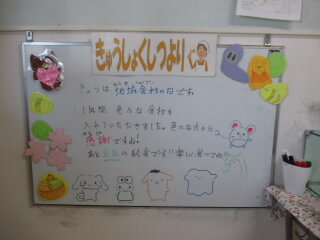 きゅうしょくしつより
きょうは 地域食材の日です
1年間 色々な食材を
入れていただきました。色々な方の
感謝ですね!
あと の給食です!!楽しく食べてね!!